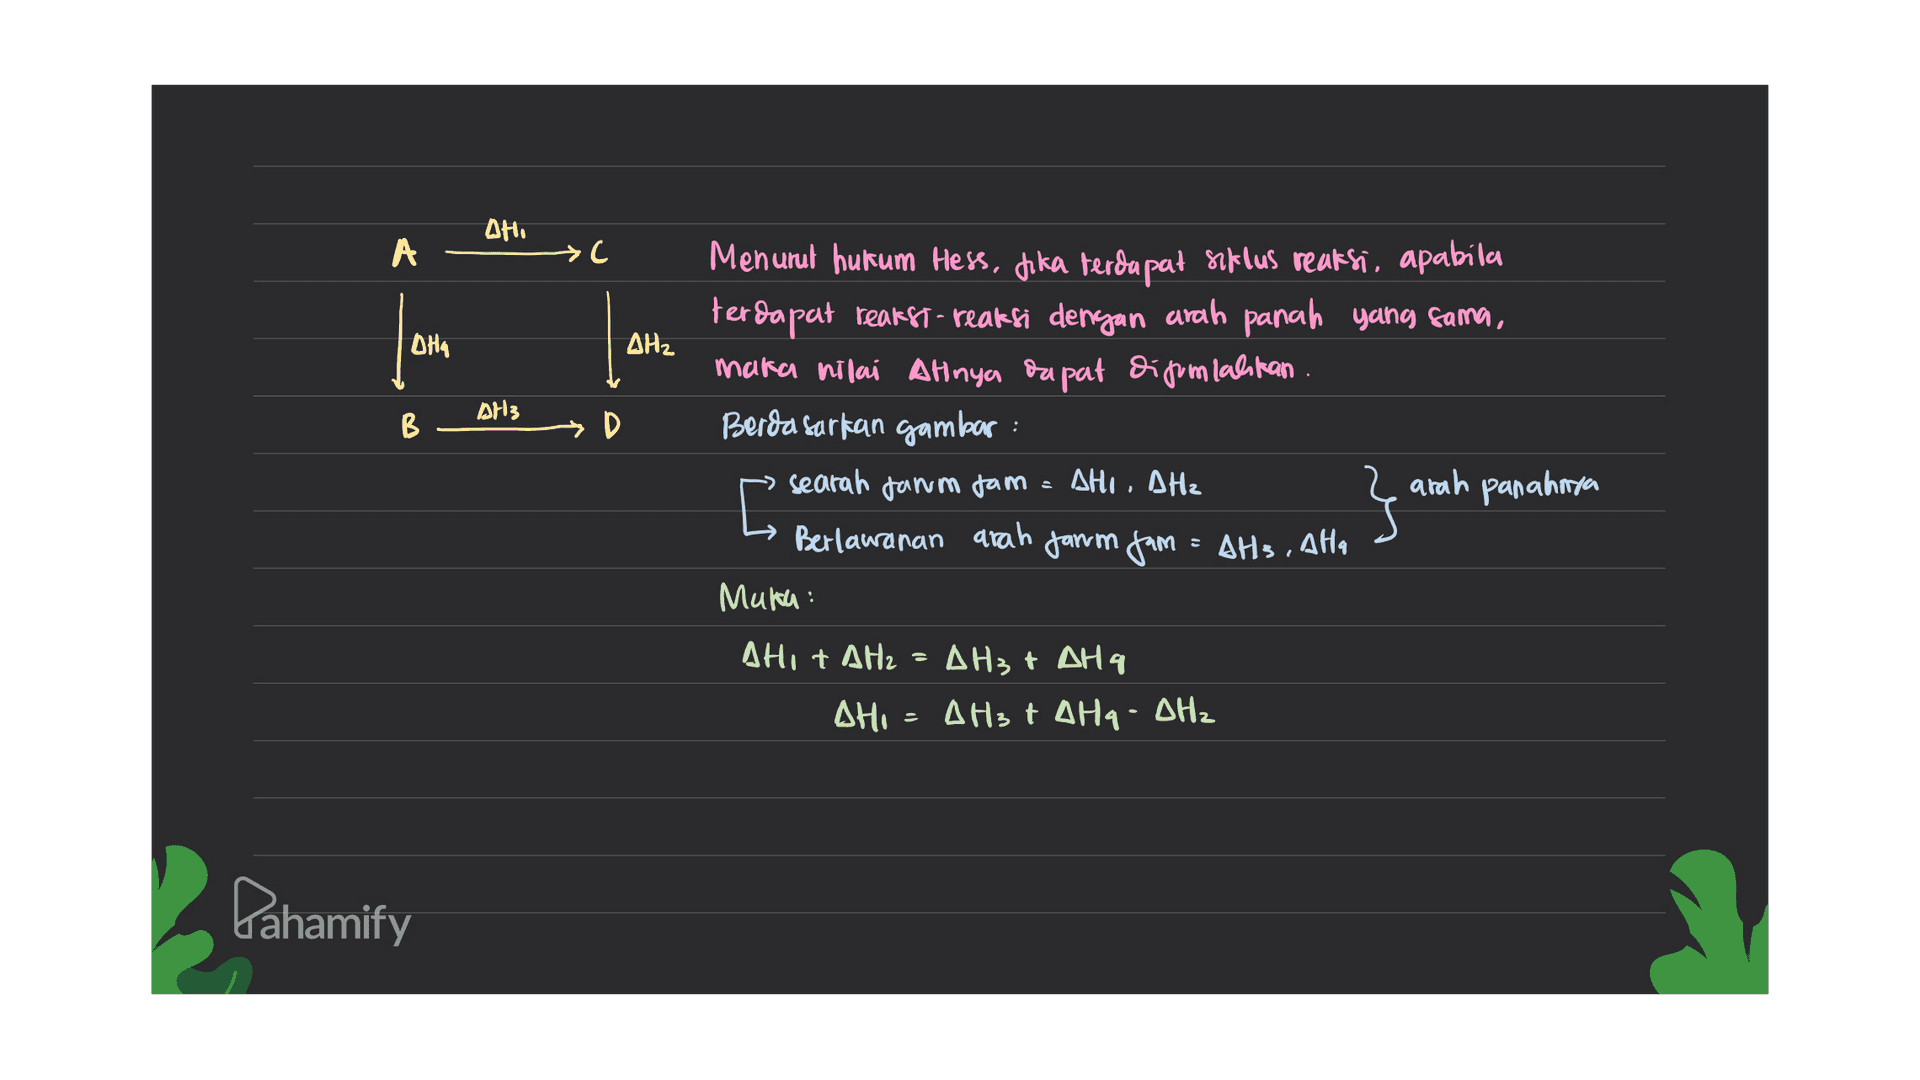 A ΔH₁ → C
ΔH₄ ΔH₂
B ΔH₃ → D
Menurut hukum Hess, jika terdapat siklus reaksi, apabila
terdapat reaksi-reaksi dengan arah panah yang sama,
maka nilai ΔHnya dapat dijumlahkan.
Berdasarkan gambar :
→ searah jarum jam = ΔH₁, ΔH₂ } arah panahnya
→ Berlawanan arah jarum jam = ΔH₃, ΔH₄
Maka :
ΔH₁ + ΔH₂ = ΔH₃ + ΔH₄
ΔH₁ = ΔH₃ + ΔH₄ - ΔH₂
Pahamify